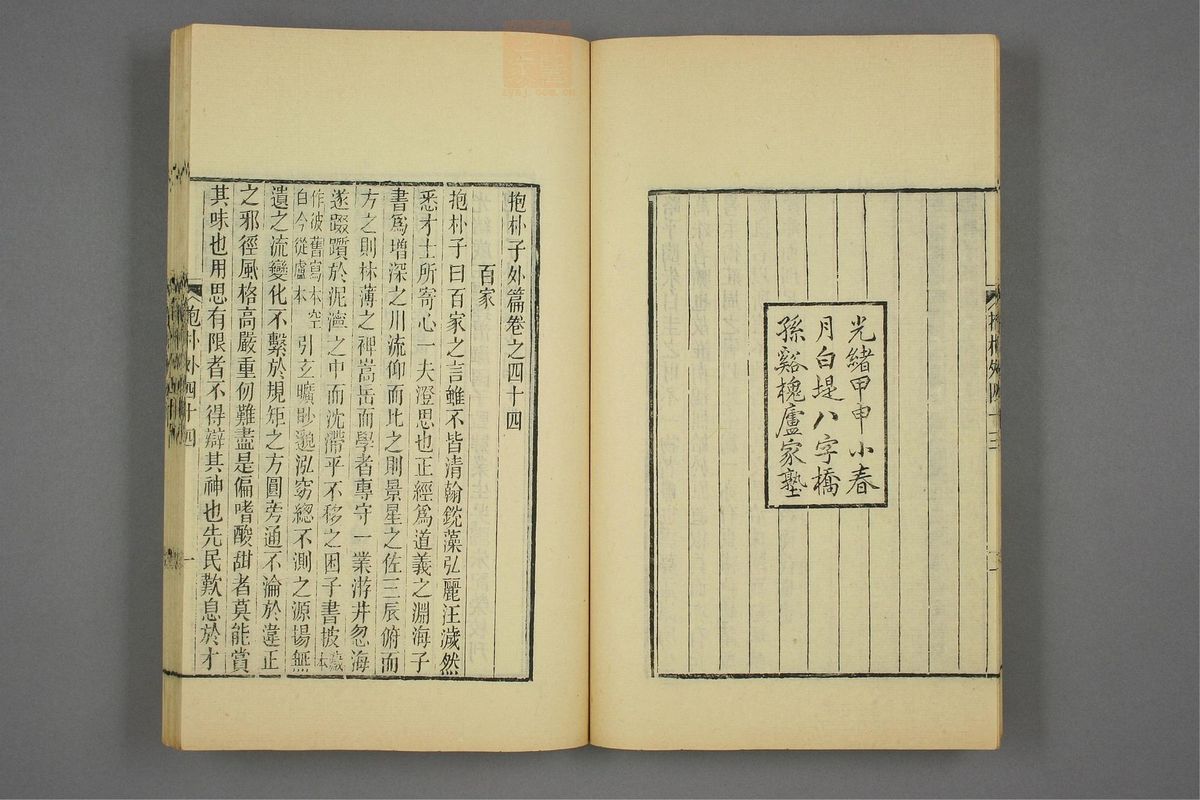 抱朴外四十三
光緒甲申小春
月白堤八字橋
孫谿槐廬家塾
抱朴子外篇卷之四十四
百家
抱朴子曰百家之言雖不皆清翰銳藻弘麗汪濊然
悉才士所寄心一夫澄思也正經爲道義之淵海子
書爲增深之川流仰而比之則景星之佐三辰俯而
方之則林薄之裨嵩岳而學者專守一業游井忽海
遂踸躓於泥濘之中而沈滯乎不移之困子書披藏本
作彼舊寫本空
白今從盧本引玄曠眇邈泓窈總不測之源揚無
遺之流變化不繫於規矩之方圓旁通不淪於違正
之邪徑風格高嚴重仞難盡是偏嗜酸甜者莫能賞
其味也用思有限者不得辯其神也先民歎息於才
抱朴外四十四
一